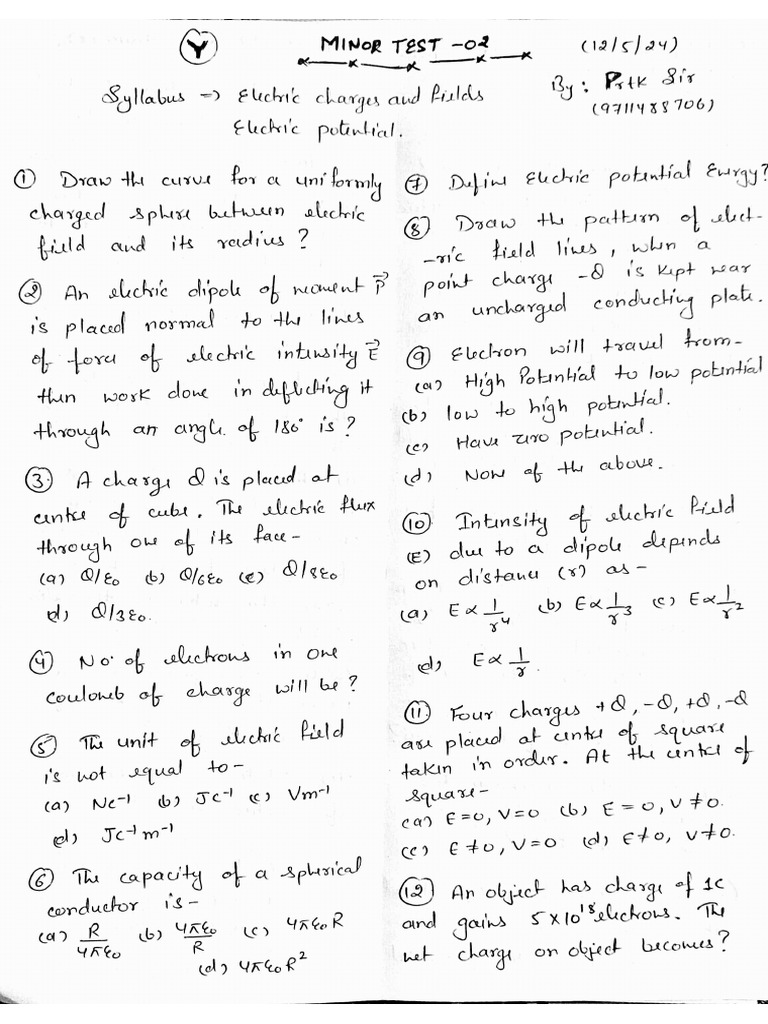 Y
MINOR TEST -02
(12/5/24)
Syllabus => Electric charges and fields
Electric potential.
By: Prtk Sir
(9711488706)
① Draw the curve for a uniformly
charged sphere between electric
field and its radius?
② An electric dipole of moment P⃗
is placed normal to the lines
of force of electric intensity E⃗
then work done in deflecting it
through an angle of 180° is?
③. A charge Q is placed at
centre of cube. The electric flux
through one of its face-
(a) Q/ε₀ (b) Q/6ε₀ (c) Q/8ε₀
d) Q/3ε₀.
④ No. of electrons in one
coulomb of charge will be?
⑤ The unit of electric field
is not equal to-
(a) NC⁻¹ (b) JC⁻¹ (c) Vm⁻¹
d) JC⁻¹m⁻¹
⑥ The capacity of a spherical
conductor is-
(a) R/4πε₀ (b) 4πε₀/R (c) 4πε₀R
(d) 4πε₀R²
⑦ Define Electric potential Energy?
⑧ Draw the pattern of elect-
-ric field lines, when a
point charge -Q is kept near
an uncharged conducting plate.
⑨ Electron will travel from-
(a) High Potential to low potential
(b) low to high potential.
(c) Have zero potential.
(d) None of the above.
⑩ Intensity of electric field
(E) due to a dipole depends
on distance (r) as-
(a) E∝1/r⁴ (b) E∝1/r³ (c) E∝1/r²
d) E∝1/r.
⑪ Four charges +Q, -Q, +Q, -Q
are placed at centre of square
taken in order. At the centre of
square-
(a) E=0, V=0 (b) E=0, V≠0.
(c) E≠0, V=0 (d) E≠0, V≠0.
⑫ An object has charge of 1C
and gains 5×10¹⁸ electrons. The
net charge on object becomes?